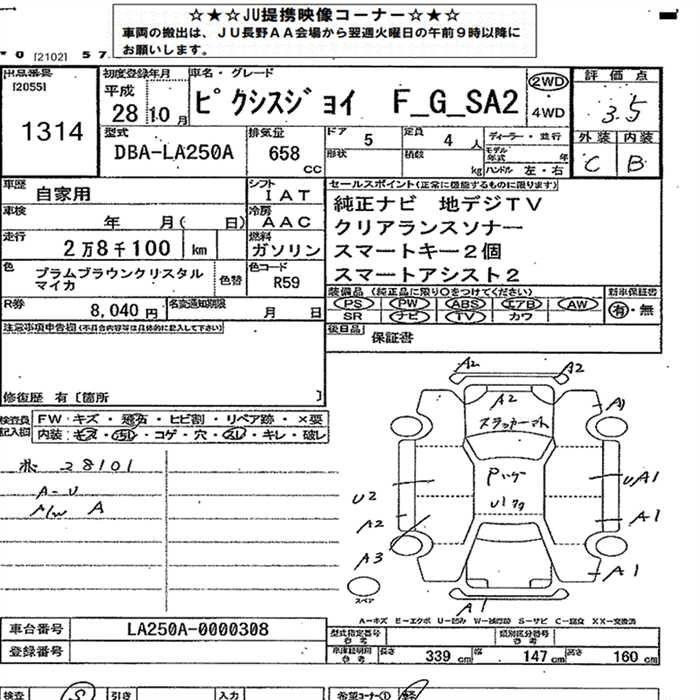 ☆★☆JU提携映像コーナー☆★☆
車両の搬出は、JU長野AA会場から翌週火曜日の午前9時以降に
お願いします。
[2102] 57
出品番号 [2055] 1314
初度登録年月 平成 28 10月
車名・グレード ピクシスジョイ F_G_SA2
2WD 4WD
評価点 3.5
外装 内装
C B
型式 DBA-LA250A
排気量 658 cc
ドア 5
形状
定員 4 人
積数 kg
ディーラー・並行
モデル年式 年
ハンドル 左・右
車歴 自家用
シフト IAT
車検 年 月( 日)
冷房 AAC
走行 2万8千100 km
燃料 ガソリン
色 プラムブラウンクリスタル
マイカ
色替
色コード R59
R券 8,040円
名変通知期限 月 日
セールスポイント(正常に機能するものに限ります)
純正ナビ 地デジTV
クリアランスソナー
スマートキー2個
スマートアシスト2
装備品 (純正品に限り○をつけてください)
PS PW ABS エアB AW
SR ナビ TV カワ
新車保証書
有・無
後日品 保証書
注意事項申告欄(不具合内容等は具体的に記入して下さい)
修復歴 有 [箇所 ]
検査員記入欄
FW:キズ・飛石・ヒビ割・リペア跡・×要
内装:キズ・汚れ・コゲ・穴・スレ・キレ・破レ
28101
A-U
A/W A
A2 A2
A2
A1
U2
A2
A3
UA1
A1
A1
A1
スペア
A-キズ E-エクボ U-凹み W-補修跡 S-サビ C-腐食 XX-交換済
車台番号 LA250A-0000308
登録番号
型式指定番号 参考
類別区分番号 参考
車庫証明用 参考
長さ 339 cm 幅 147 cm 高さ 160 cm
検査 引き 入力 希望コーナー① 軽